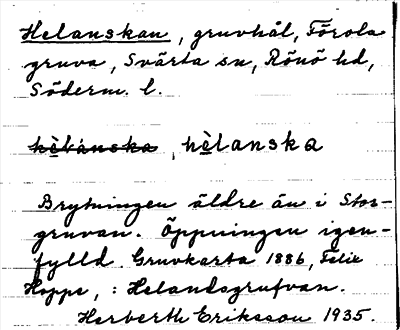 Helanskan, gruvhål, Förola
gruva, Svärta sn, Rönö hd,
Söderm. l.
hèlanska
Brytningen äldre än i Stor-
gruvan. Öppningen igen-
fylld. Gruvkarta 1886, Felix
Hoppe, : Helandsgrufvan.
Herberth Eriksson 1935.